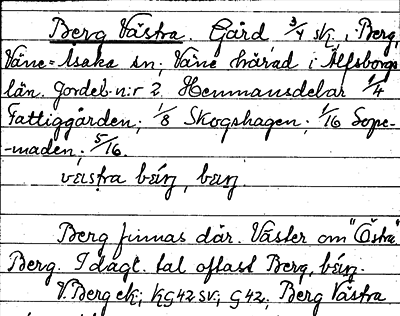 Berg Västra. Gård 3/4 sk, i Berg,
Väne-Åsaka sn; Väne härad i Älfsborgs
län. Jordeb. n:r 2. Hemmansdelar 1/4
Fattiggården; 1/8 Skogshagen; 1/16 Sope-
-maden; 5/16.
västra
Berg finnas där. Väster om "Östra"
Berg. I dagl. tal oftast Berg,
V. Berg ek; KG42 sv; G42; Berg Västra